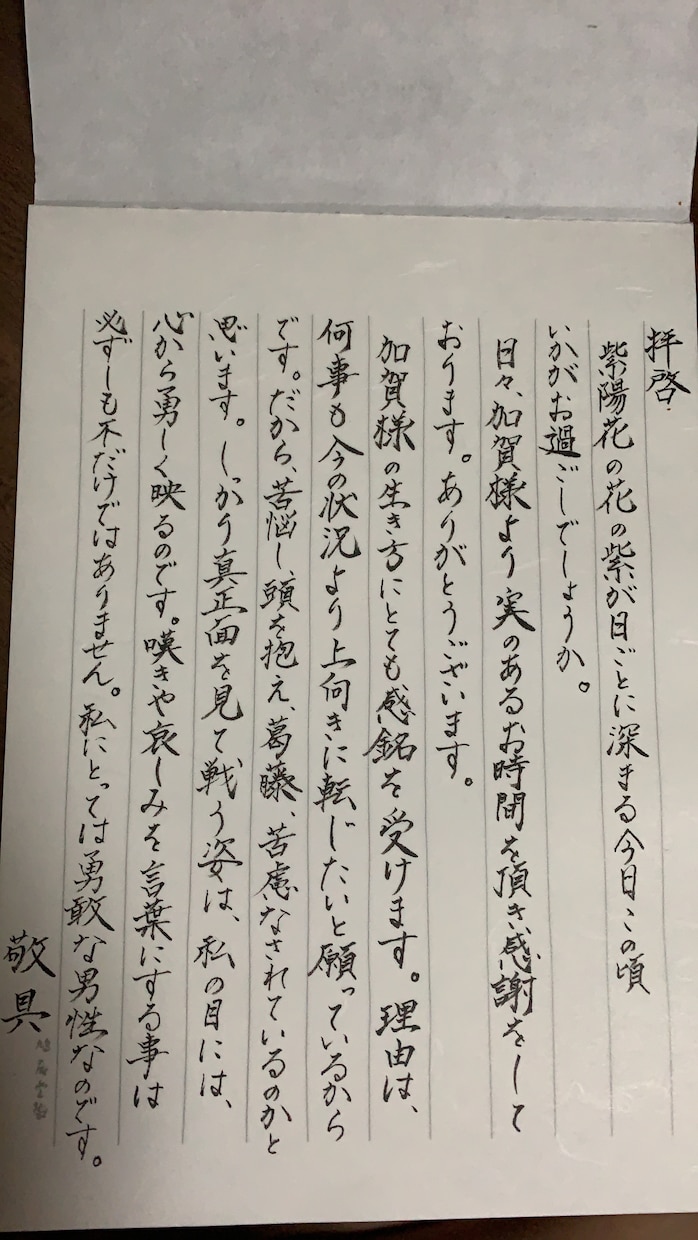 拝啓
紫陽花の花の紫が日ごとに深まる今日この頃
いかがお過ごしでしょうか。
日々、加賀様より実のあるお時間を頂き感謝をして
おります。ありがとうございます。
加賀様の生き方にとても感銘を受けます。理由は、
何事も今の状況より上向きに転じたいと願っているから
です。だから、苦悩し、頭を抱え、葛藤、苦慮なされているのかと
思います。しっかり真正面を見て戦う姿は、私の目には、
心から勇しく映るのです。嘆きや哀しみを言葉にする事は
必ずしも不だけではありません。私にとっては勇敢な男性なのです。
敬具